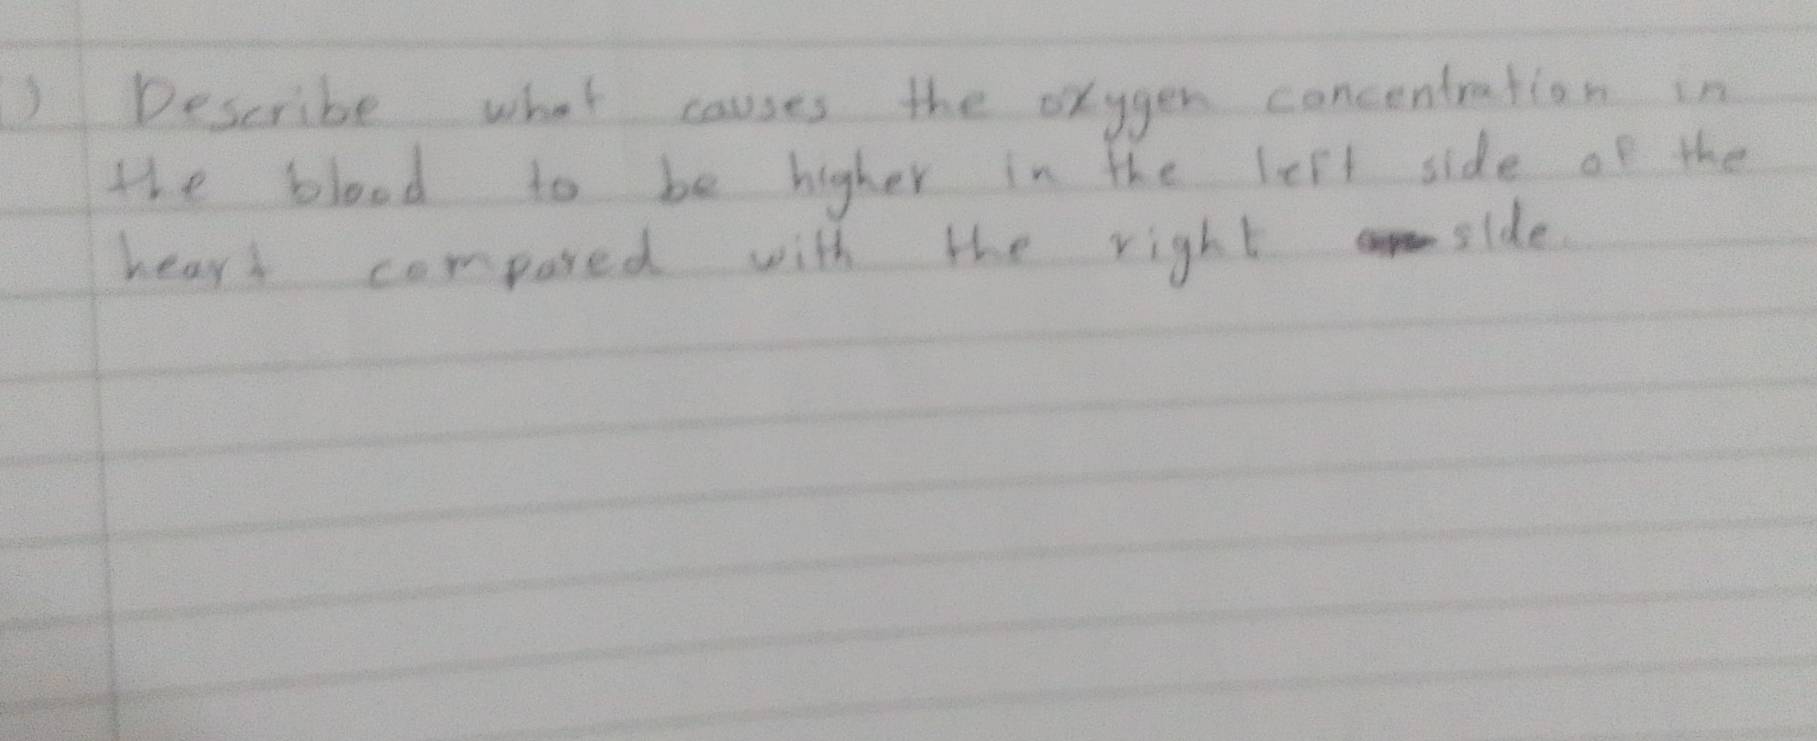 ) Describe what causes the oxygen concentration in
the blood to be higher in the left side of the
heart compared with the right side.